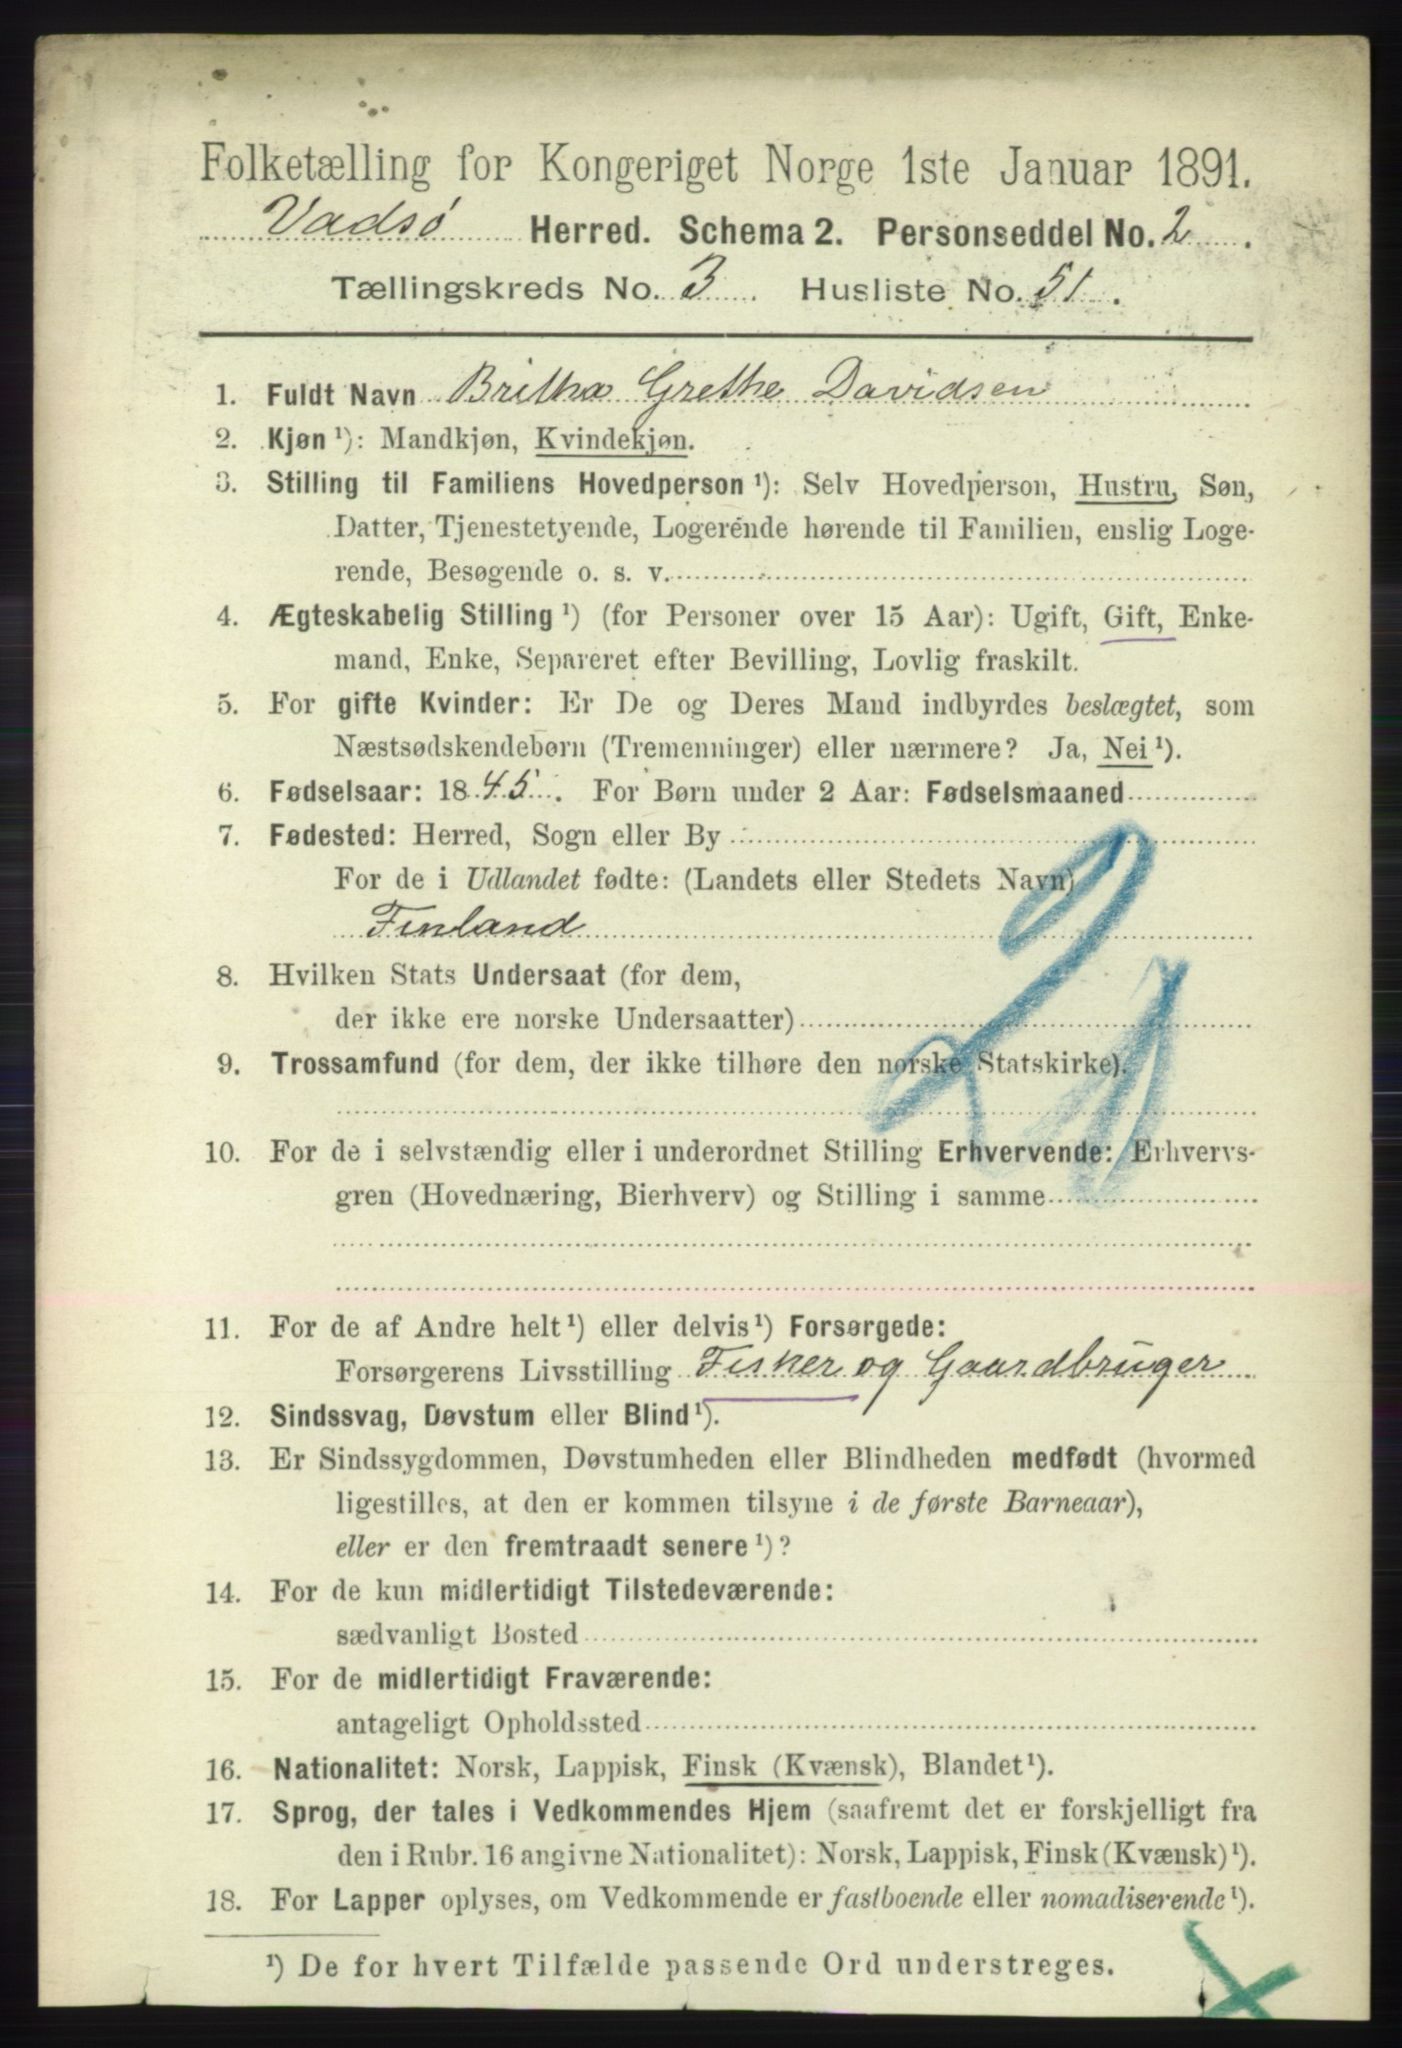 Folketælling for Kongeriget Norge 1ste Januar 1891.
Vadsø Herred. Schema 2. Personseddel No. 2.
Tællingskreds No. 3. Husliste No. 51.
1. Fuldt Navn Britha Grethe Davidsen
2. Kjøn ¹): Mandkjøn, Kvindekjøn.
3. Stilling til Familiens Hovedperson ¹): Selv Hovedperson, Hustru, Søn,
Datter, Tjenestetyende, Logerende hørende til Familien, enslig Loge-
rende, Besøgende o. s. v.
4. Ægteskabelig Stilling ¹) (for Personer over 15 Aar): Ugift, Gift, Enke-
mand, Enke, Separeret efter Bevilling, Lovlig fraskilt.
5. For gifte Kvinder: Er De og Deres Mand indbyrdes beslægtet, som
Næstsødskendebørn (Tremenninger) eller nærmere? Ja, Nei ¹).
6. Fødselsaar: 1845. For Børn under 2 Aar: Fødselsmaaned
7. Fødested: Herred, Sogn eller By
For de i Udlandet fødte: (Landets eller Stedets Navn)
Finland
8. Hvilken Stats Undersaat (for dem,
der ikke ere norske Undersaatter)
9. Trossamfund (for dem, der ikke tilhøre den norske Statskirke).
10. For de i selvstændig eller i underordnet Stilling Erhvervende: Erhvervs-
gren (Hovednæring, Bierhverv) og Stilling i samme
11. For de af Andre helt ¹) eller delvis ¹) Forsørgede:
Forsørgerens Livsstilling Fisker og Gaardbruger
12. Sindssvag, Døvstum eller Blind ¹).
13. Er Sindssygdommen, Døvstumheden eller Blindheden medfødt (hvormed
ligestilles, at den er kommen tilsyne i de første Barneaar),
eller er den fremtraadt senere ¹)?
14. For de kun midlertidigt Tilstedeværende:
sædvanligt Bosted
15. For de midlertidigt Fraværende:
antageligt Opholdssted
16. Nationalitet: Norsk, Lappisk, Finsk (Kvænsk), Blandet ¹).
17. Sprog, der tales i Vedkommendes Hjem (saafremt det er forskjelligt fra
den i Rubr. 16 angivne Nationalitet): Norsk, Lappisk, Finsk (Kvænsk) ¹).
18. For Lapper oplyses, om Vedkommende er fastboende eller nomadiserende ¹).
¹) De for hvert Tilfælde passende Ord understreges.